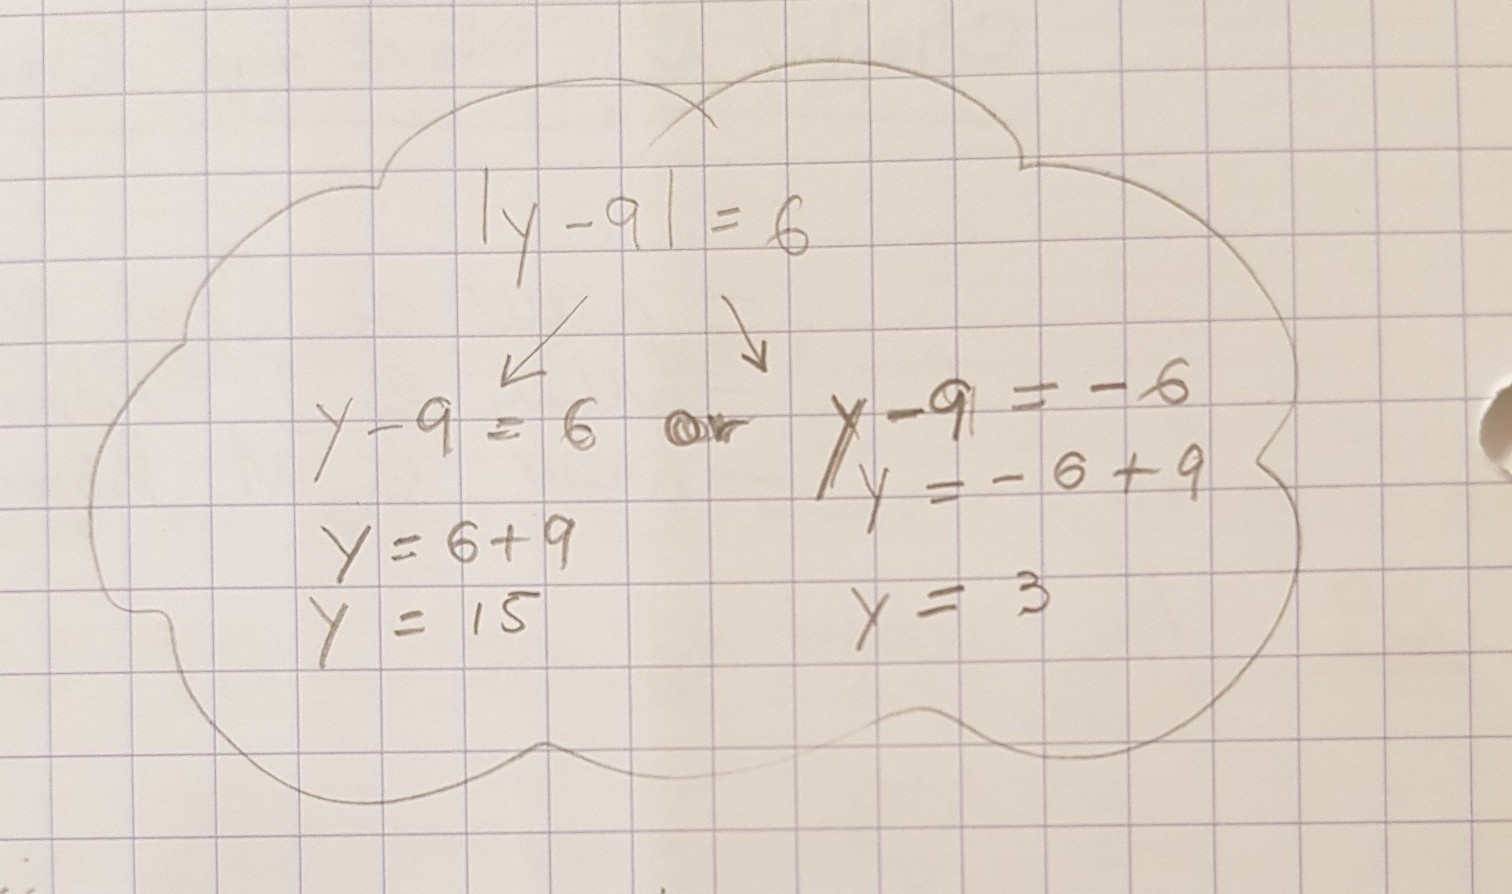 |y - 9| = 6
y - 9 = 6 or y - 9 = - 6
y = - 6 + 9
y = 6 + 9
y = 15
y = 3